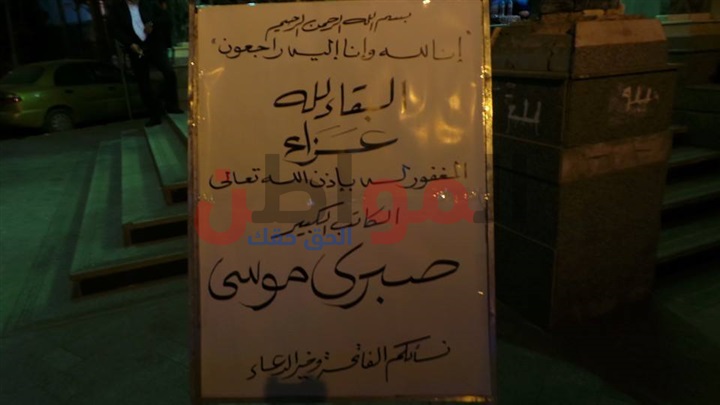 بسم الله الرحمن الرحيم
"إنا لله وإنا إليه راجعون"
البقاء لله
عزاء
المغفور له بإذن الله تعالى
الكاتب الكبير
صبرى موسى
نسألكم الفاتحة وخير الدعاء
لمواطن
الحق حقك